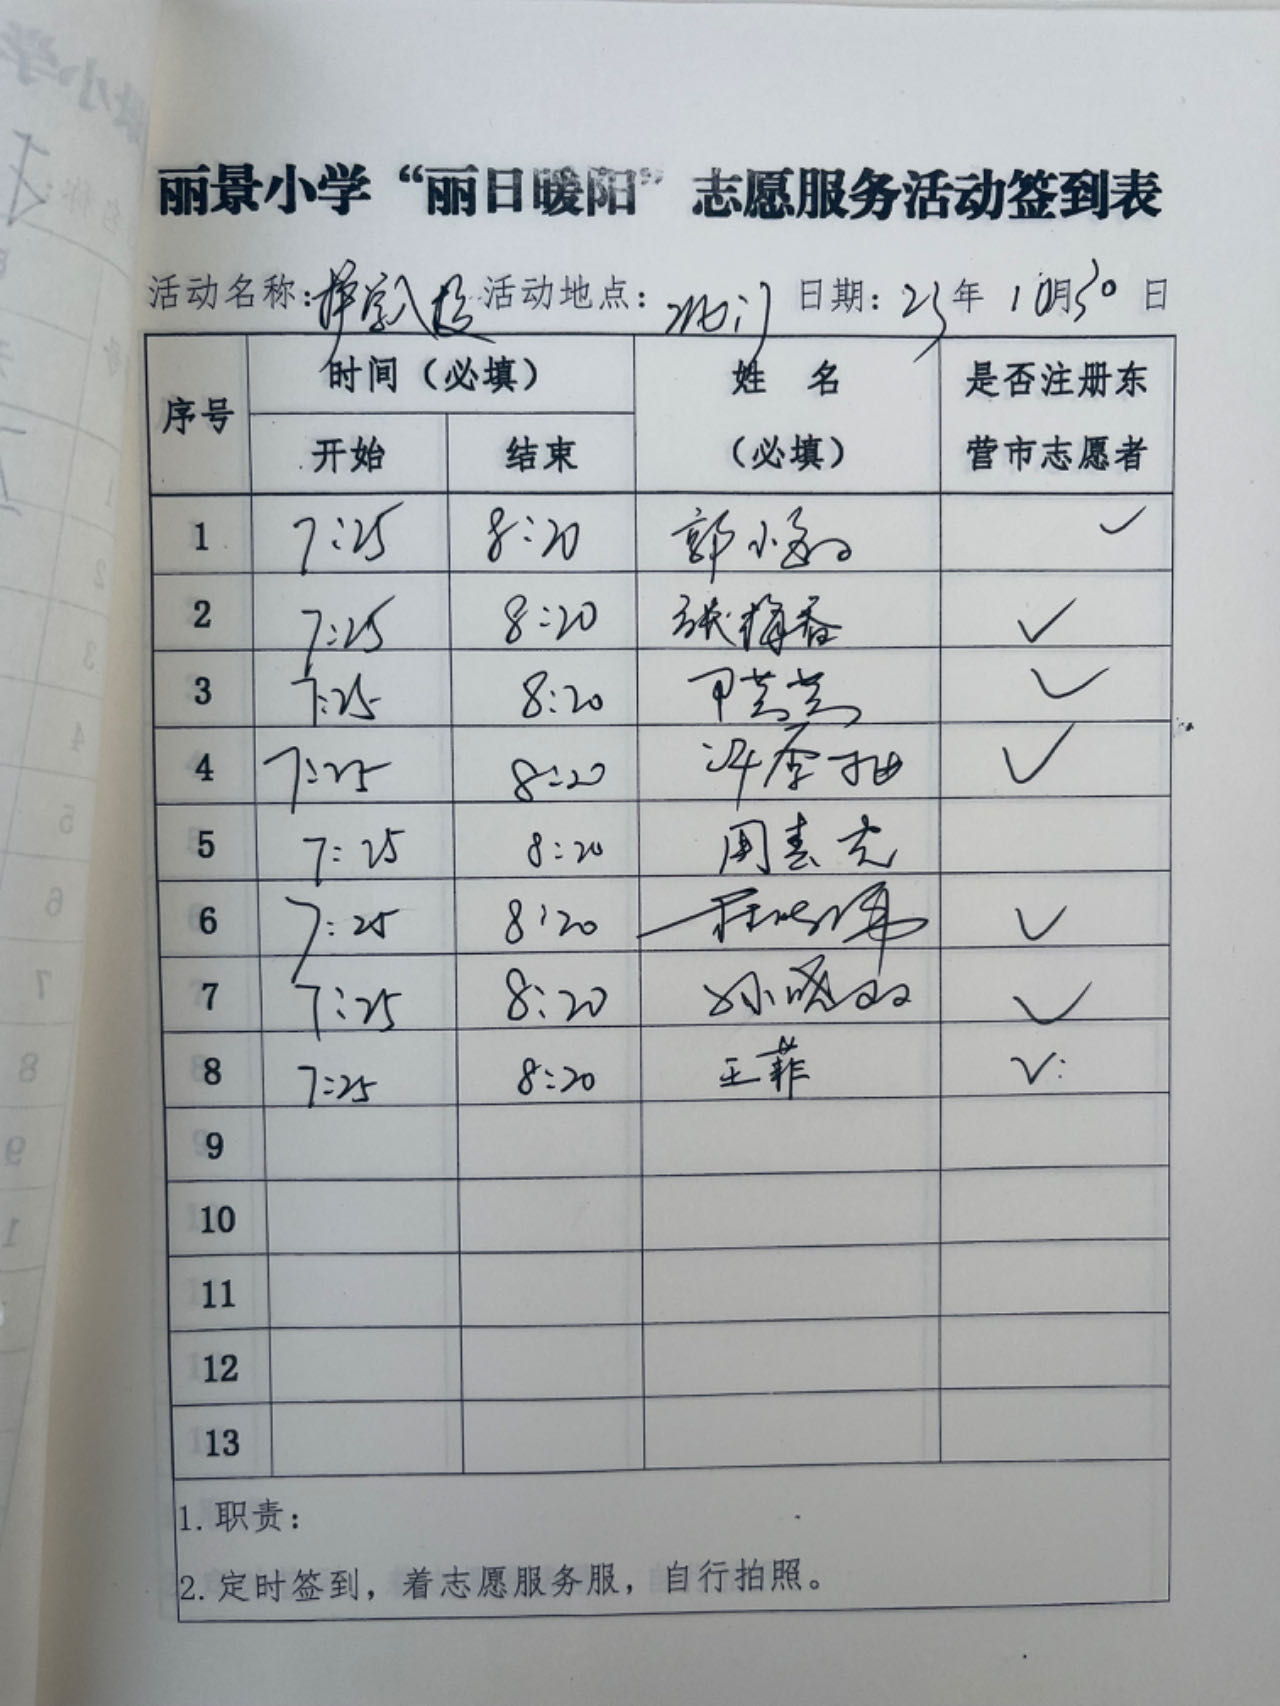 丽景小学“丽日暖阳”志愿服务活动签到表
活动名称: 活动地点: 日期: 23年10月30日
序号 时间（必填） 姓名（必填） 是否注册东营市志愿者
开始 结束
1 7:25 8:20 郭小 ✓
2 7:25 8:20 张梅香 ✓
3 7:25 8:20 ✓
4 7:25 8:20 ✓
5 7:25 8:20 周春光
6 7:25 8:20 程晓 ✓
7 7:25 8:20 孙晓双 ✓
8 7:25 8:20 王菲 ✓
9
10
11
12
13
1.职责：
2.定时签到，着志愿服务服，自行拍照。